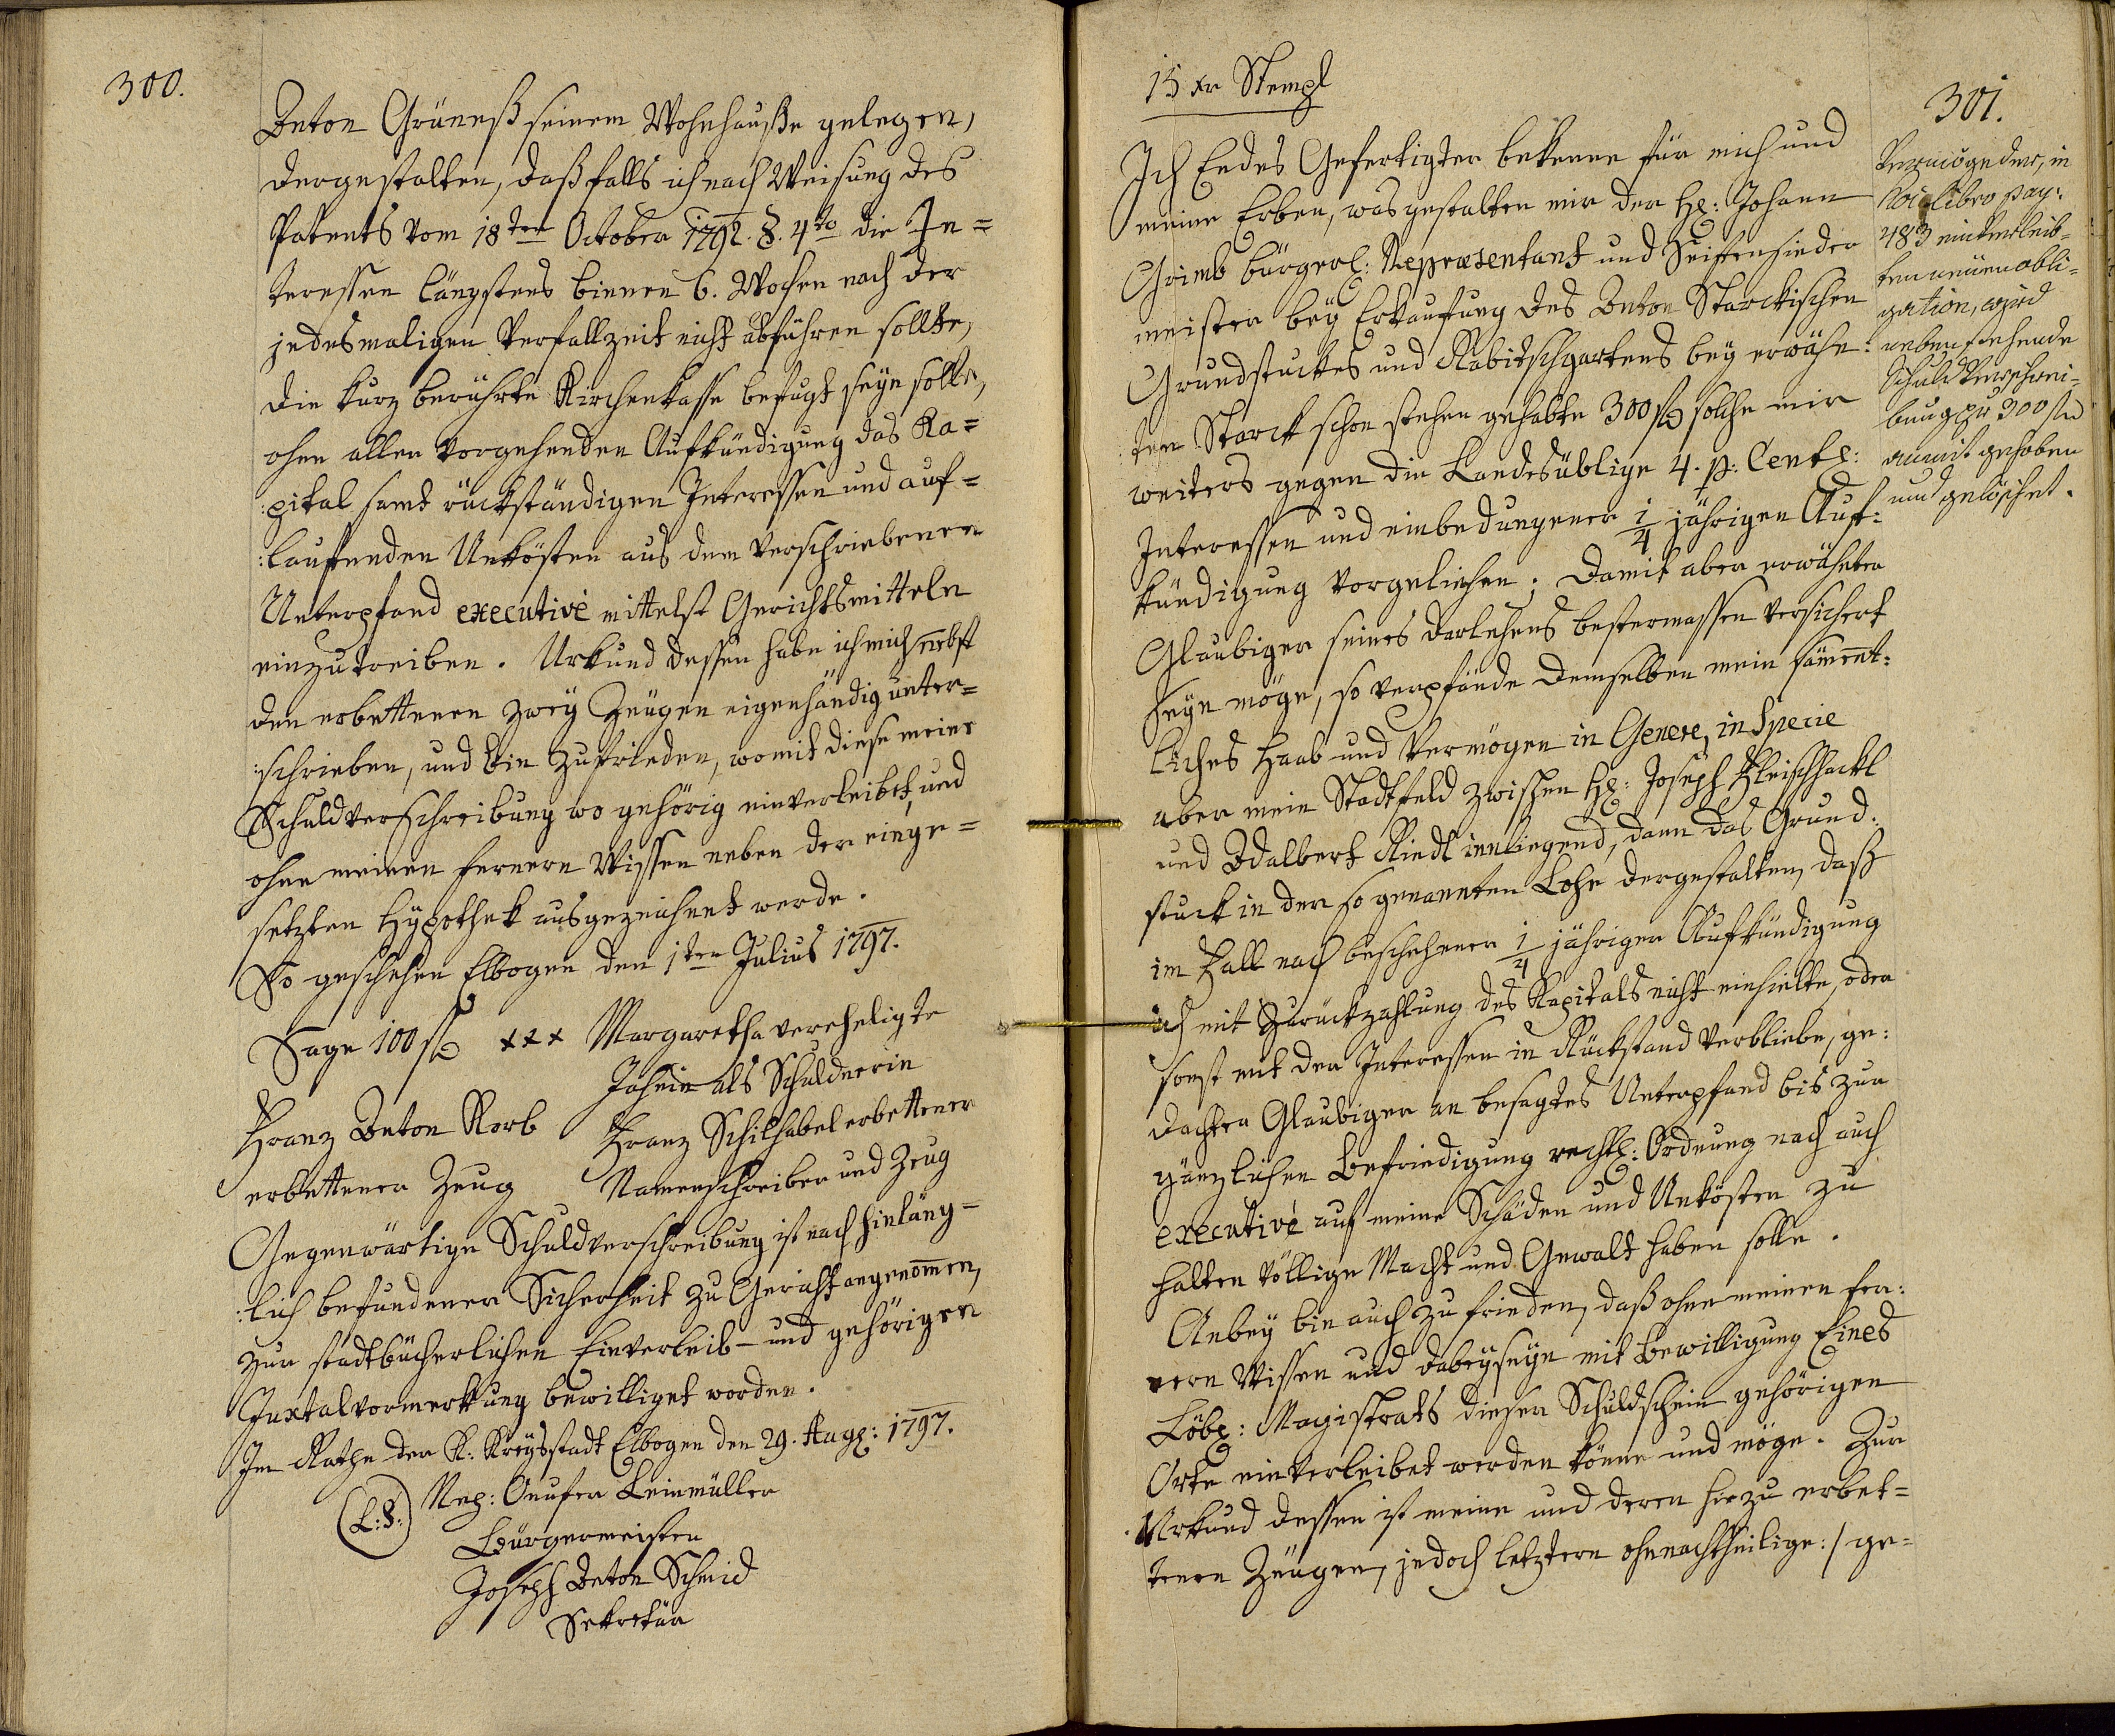 300.
Anton Gräneß seinem Wohnhauße gelegen,
dergestalten, daß falls ich nach Weisung des
Patents vom 18ten October 1792. §. 4to die In=
teressen längstens binnen 6. Wochen nach der
jedesmaligen Verfallzeit nicht abführen sollte,
die kurz berührte Kirchenkasse befugt seyn solle,
ohne aller vorgehenden Aufkündigung das Ka=
:pital samt rückständigen Interessen und auf=
:laufenden Unkösten aus dem verschriebenen
Unterpfand executivè mittelst Gerichtsmitteln
einzutreiben. Urkund dessen habe ich mich nebst
den erbettenen zwey Zeugen eigenhändig unter=
:schrieben, und bin zufrieden, womit diese meine
Schuldverschreibung wo gehörig einverleibet, und
ohne meinen fernern Wissen neben der einge=
setzten Hypothek ausgezeichnet werde.
So geschehen Elbogen den 1ten Julius 1797.
Sage 100 f xxx Margaretha vereheligte
Johnin als Schuldnerin
Franz Anton Korb Franz Schilhabel erbettener
erbettener Zeug Namenschreiber und Zeug
Gegenwärtige Schuldverschreibung ist nach hinläng=
:lich befundener Sicherheit zu Gericht angenom̄en,
zur stadtbücherlichen Einverleib- und gehörigen
Juxtalvormerkung bewilliget worden.
Im Rathe der K: Kreysstadt Elbogen den 29. Aug: 1797.
(L:S:) Nep: Onufer Leinmüller
Bürgermeister
Joseph Anton Schmid
Sekretär
15 xr Stempl
301.
Ich Endes Gefertigter bekenne für mich und
meine Erben, was gestalten mir der H: Johann
Grimb bürgerl: Repræsentant und Seifensieder
meister bey Erkaufung des Anton Starckischen
Grundstuckes und Rabitschgartens bey erwähn:
:ten Starck schon stehen gehabte 300 f solche mir
weiters gegen die Landesüblige 4. p: Cent:
Interessen und einbedungener 1/4 jährigen Auf:
kündigung vorgeliehen; damit aber erwähnter
Glaubiger seines Darlehens bestermassen versichert
seyn möge, so verpfände demselben mein säm̄ent:
liches Haab und Vermögen in Genere, in Specie
aber mein Stadtfeld zwischen H: Joseph Fleischhackl
und Adalbert Riedl innliegend, dann das Grund:
stuck in der so genannten Lohe dergestalten, daß
im Fall nach beschehener 1/4 jähriger Aufkündigung
ich mit Zurückzahlung des Kapitals nicht einhielte, oder
sonst mit den Interessen in Rückstand verbliebe, ge:
dachter Glaubiger an besagtes Unterpfand bis zur
gänzlichen Befriedigung rechtl: Ordnung nach auch
executivè auf meine Schäden und Unkösten zu
halten völlige Macht und Gewalt haben solle.
Anbey bin auch zu frieden, daß ohne meinen fer:
nern Wissen und dabeyseyn mit Bewilligung Eines
Löbl: Magistrats dieser Schuldschein gehörigen
Orte einverleibet werden könne und möge. Zur
Urkund dessen ist meine und deren hiezu erbet=
tenen Zeugen, jedoch letztern ohnnachtheilige :/ ge=
Vermög der, in
libro pag:
483 einverleib=
ten neüen obli=
gation, wird
nebenstehende
Schuld Verschrei=
bung pr 300 f
anmit gehoben
und gelöschet.